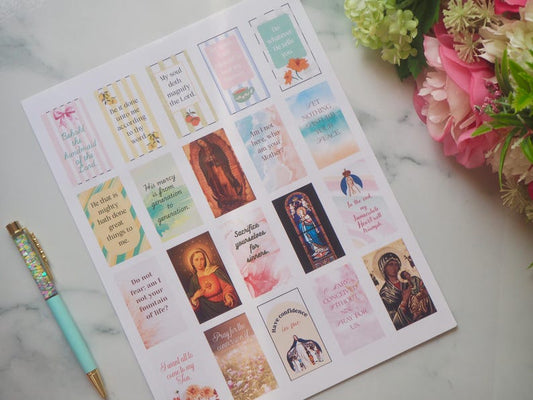 Behold
the
handmaid
of the
Land.
Be it done
unto me
according
to the
word.
My soul
doth
magnify
the Lord.
Do
whatever
He tells
you.
He that is
mighty
hath done
great
things to
me.
His mercy
is from
generation
to
generation.
Am I not
here, who
am your
Mother?
LET
NOTHING
PEACE.
Do not
fear; am I
not your
fountain
of life?
Sacrifice
yourselves
for
sinners.
In the end
my
Immaculate
Heart will
Triumph.
I want all to
come to my
Son.
Pray for the
Have confidence
in me.
MARY
CONCEIVED
WITHOUT
SIN,
PRAY FOR
US.